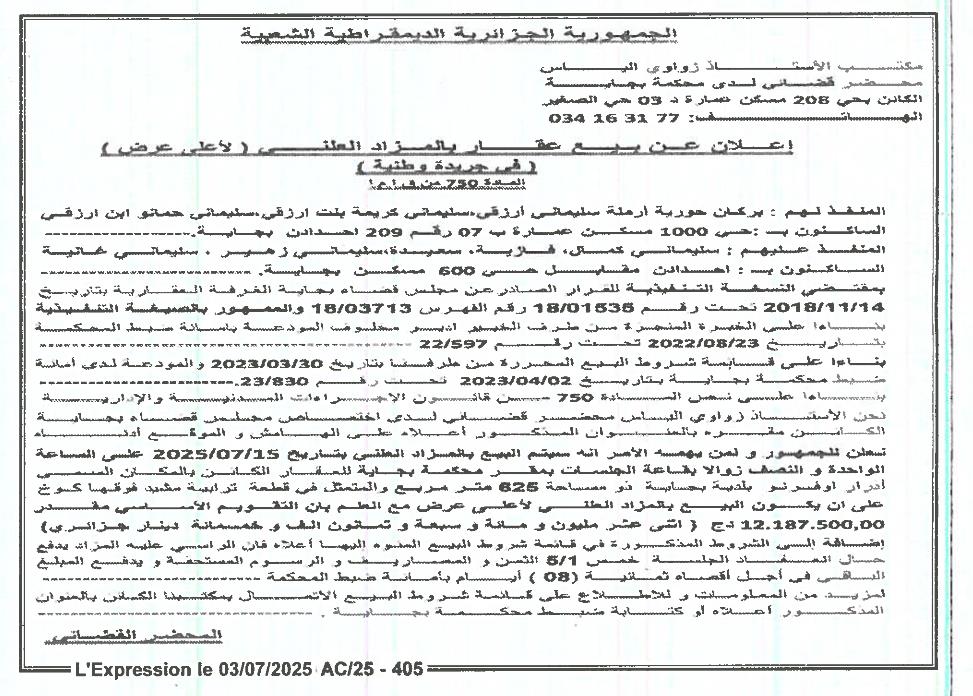 الجمهورية الجزائرية الديمقراطية الشعبية
مكتب الأستاذ زواوي الياس
محضر قضائي لدى محكمة بجاية
الكائن بحي 208 مسكن عمارة د 03 حي الصغير
الهاتف: 034 16 31 77
إعلان عن بيع عقار بالمزاد العلني ( لأعلى عرض )
( في جريدة وطنية )
المادة 750 من ق إ م إ
المنفذ لهم : بركان حورية أرملة سليماني أرزقي،سليماني كريمة بنت ارزقي،سليماني حمانو ابن ارزقي
الساكنون بـ :حي 1000 مسكن عمارة ب 07 رقم 209 احدادن بجاية.
المنفذ عليهم : سليماني كمال، فازية، سعيدة،سليماني زهير ، سليماني غانية
الساكنون بـ : احدادن مقابل حي 600 مسكن بجاية.
بمقتضى النسخة التنفيذية للقرار الصادر عن مجلس قضاء بجاية الغرفة العقارية بتاريخ
2018/11/14 تحت رقم 18/01535 رقم الفهرس 18/03713 والممهور بالصيغة التنفيذية
بناءا على الخبرة المنجزة من طرف الخبير ادير مخلوف المودعة بأمانة ضبط المحكمة
بتاريخ 2022/08/23 تحت رقم 22/597
بناءا على قائمة شروط البيع المحررة من طرفنا بتاريخ 2023/03/30 والمودعة لدى أمانة
ضبط محكمة بجاية بتاريخ 2023/04/02 تحت رقم 23/830.
بناءا على نص المادة 750 من قانون الإجراءات المدنية والإدارية
نحن الأستاذ زواوي الياس محضر قضائي لدى اختصاص مجلس قضاء بجاية
الكائن مقره بالعنوان المذكور أعلاه على الهامش و الموقع أدناه
نعلن للجمهور و لمن يهمه الأمر انه سيتم البيع بالمزاد العلني بتاريخ 2025/07/15 على الساعة
الواحدة و النصف زوالا بقاعة الجلسات بمقر محكمة بجاية للعقار الكائن بالمكان المسمى
أدرار اوفرنو بلدية بجاية ذو مساحة 625 متر مربع والمتمثل في قطعة ترابية مشيد فوقها كوخ
على ان يكون البيع بالمزاد العلني لأعلى عرض مع العلم بان التقويم الأساسي مقدر
12.187.500,00 دج ( اثني عشر مليون و مائة و سبعة و ثمانون الف و خمسمائة دينار جزائري)
إضافة إلى الشروط المذكورة في قائمة شروط البيع المنوه إليها أعلاه فان الراسي عليه المزاد يدفع
حال انعقاد الجلسة خمس 5/1 الثمن و المصاريف و الرسوم المستحقة و يدفع المبلغ
الباقي في أجل أقصاه ثمانية (08 ) أيام بأمانة ضبط المحكمة
لمزيد من المعلومات و للاطلاع على قائمة شروط البيع الاتصال بمكتبنا الكائن بالعنوان
المذكور أعلاه او كتابة ضبط محكمة بجاية .
المحضر القضائي
L'Expression le 03/07/2025 AC/25 - 405